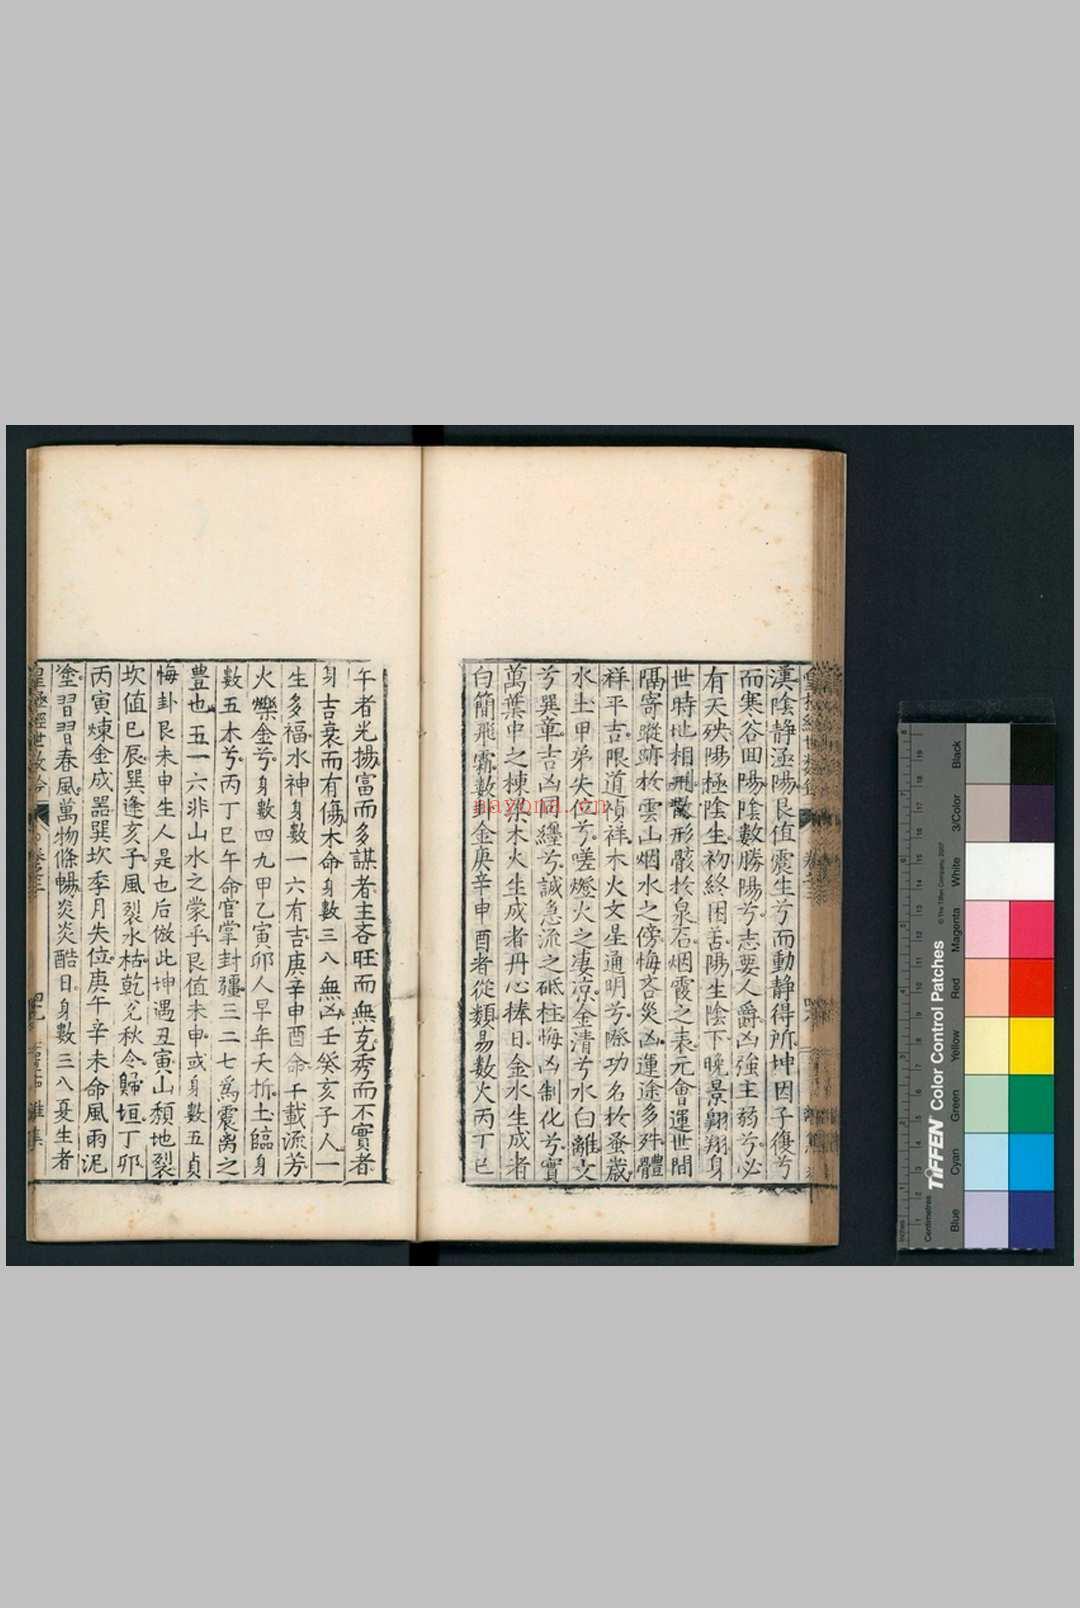 漢陰静溼陽艮值震生兮而動静得所坤因子復兮
而寒谷回陽陰數勝陽兮志要人爵凶強主弱兮必
有天殃陽極陰生初終困苦陽生陰下晚景翱翔身
世時地相刑散形骸於泉石烟霞之表元會運世間
隔寄蹤跡於雲山烟水之傍悔吝災凶運途多殊體
祥平吉限道禎祥木火文星通明兮際功名於蚤歲
水土甲弟失位兮嗟燈火之凄凉金清兮水白離文
兮巽章吉凶同纏兮誠急流之砥柱悔凶制化兮實
萬葉中之棟梁木火生成者丹心捧日金水生成者
白簡飛霜數卦金庚辛申酉者從類易數火丙丁巳
午者光揚富而多謀者主吝旺而無克秀而不實者
身吉衰而有傷木命身數三八無凶壬癸亥子人一
生多福水神身數一六有吉庚辛申酉命千載流芳
火爍金兮身數四九甲乙寅卯人早年夭折土臨身
數五木兮丙丁巳午命官掌封疆三二七爲震离之
豊也五一六非山水之蒙乎艮值未申或身數五貞
悔卦艮未申生人是也后倣此坤遇丑寅山頽地裂
坎值巳辰巽逢亥子風裂水枯乾兌秋令歸垣丁卯
丙寅煉金成噐巽坎季月失位庚午辛未命風雨泥
塗習習春風萬物條暢炎炎酷日身數三八夏生者
皇極經世數
Inches
Centimetres
TIFFEN Color Control Patches
© The Tiffen Company, 2007
Blue
Cyan
Green
Yellow
Red
Magenta
White
3/Color
Black
nayona.cn